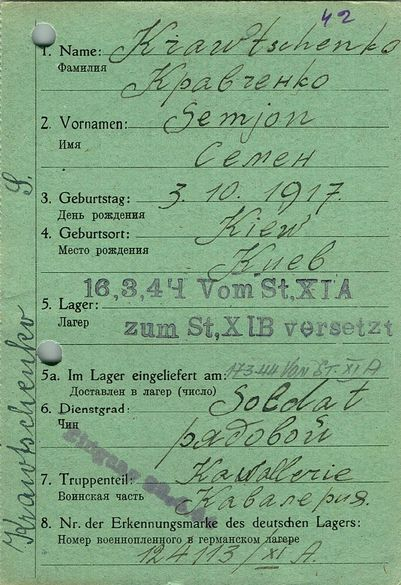 42
1. Name: Krawtschenko
Фамилия Кравченко
2. Vornamen: Semjon
Имя Семен
3. Geburtstag: 3. 10. 1917.
День рождения
4. Geburtsort: Kiew
Место рождения Киев
16,3,44 Vom St,XIA
5. Lager:
Лагер zum St,XIB versetzt
5a. Im Lager eingeliefert am: 17.3.44 Vom St. XI A
Доставлен в лагер (число)
6. Dienstgrad: Soldat
Чин рядовой
Eingang
7. Truppenteil: Kawallerie
Воинская часть Кавалерия.
8. Nr. der Erkennungsmarke des deutschen Lagers:
Номер военнопленного в германском лагере
124113/XI A.
Krawtschenko S.